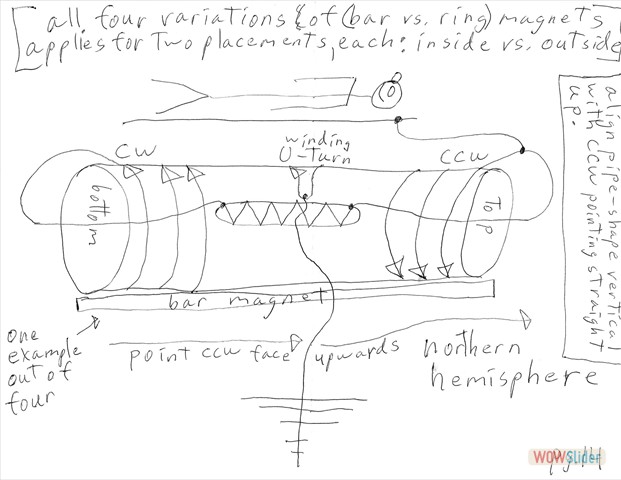 all four variations of (bar vs. ring) magnets
applies for Two placements, each: inside vs. outside
align pipe-shape vertical
with CCW pointing straight
up.
CW
winding
U-Turn
CCW
bottom
Top
bar magnet
one
example
out of
four
point ccw face upwards
northern
hemisphere
WOWSlider